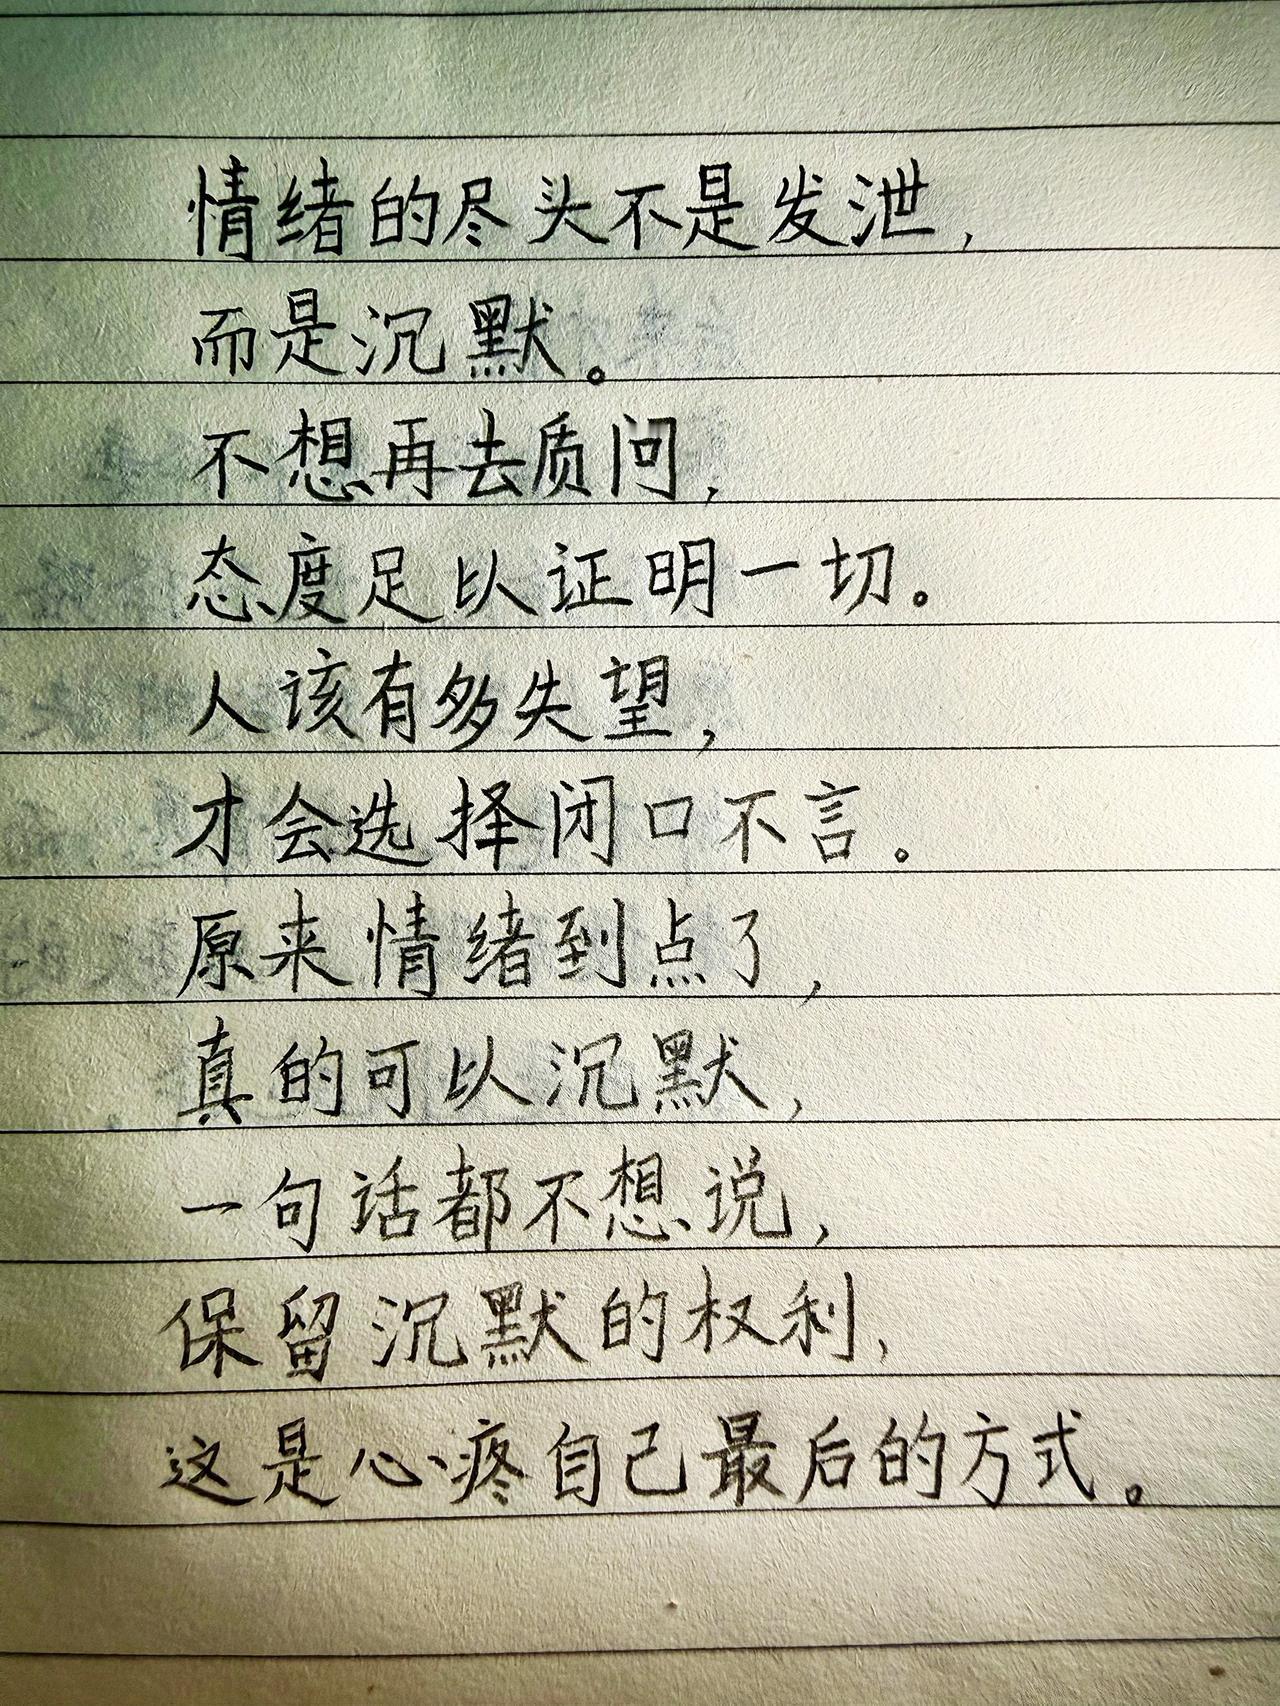 情绪的尽头不是发泄，
而是沉默。
不想再去质问，
态度足以证明一切。
人该有多失望，
才会选择闭口不言。
原来情绪到点了，
真的可以沉默，
一句话都不想说，
保留沉默的权利，
这是心疼自己最后的方式。